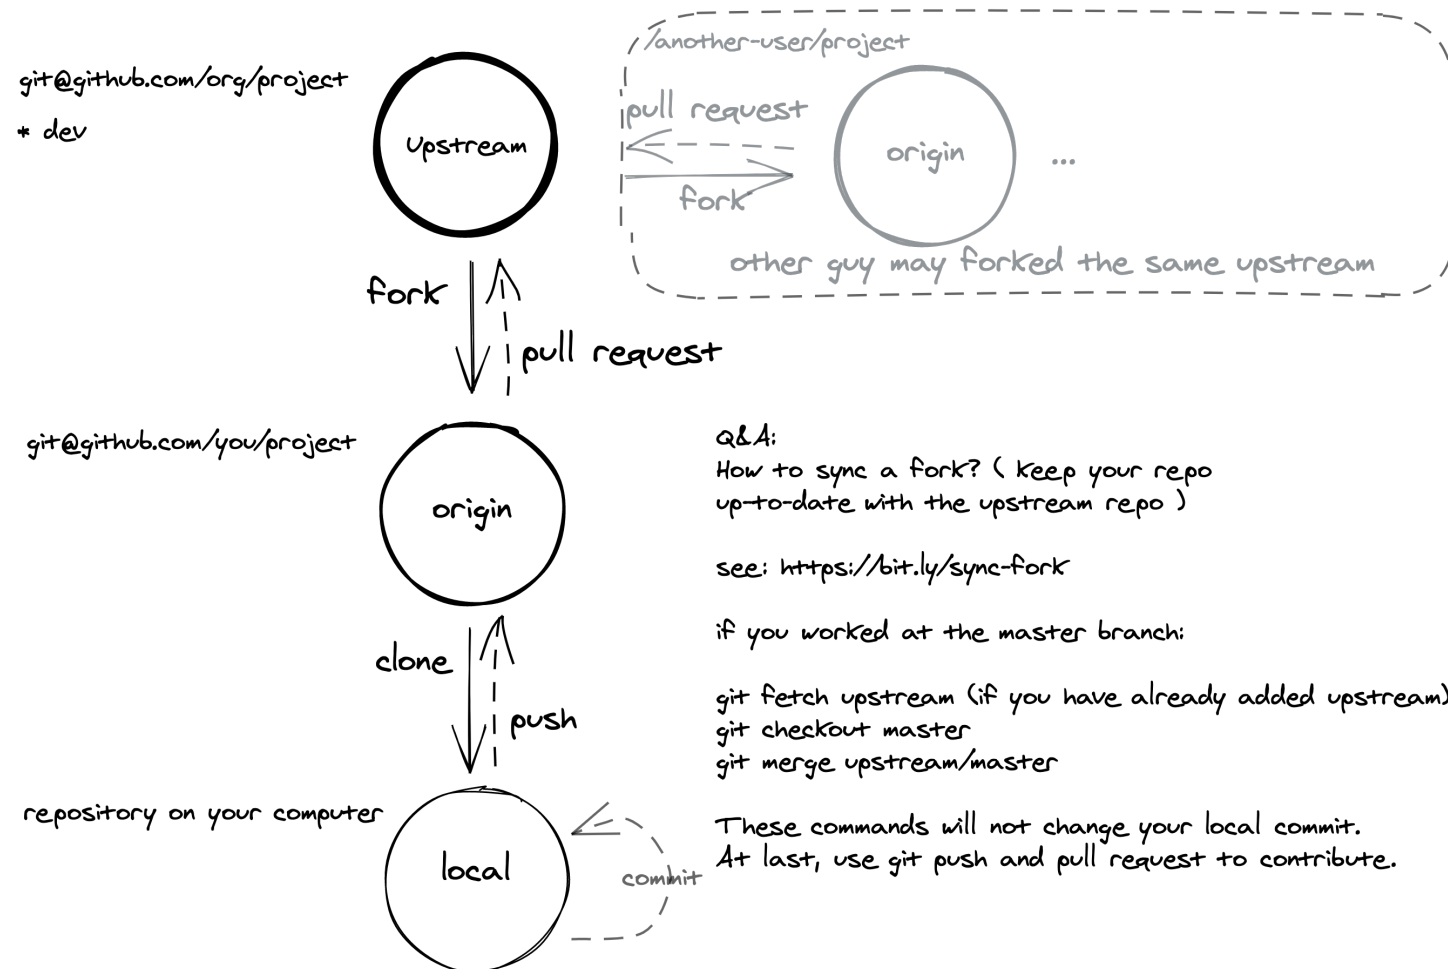 git@github.com/org/project
* dev
upstream
/another-user/project
pull request
fork
origin
...
other guy may forked the same upstream
fork
pull request
git@github.com/you/project
origin
clone
push
repository on your computer
local
commit
Q&A:
How to sync a fork? ( keep your repo
up-to-date with the upstream repo )
see: https://bit.ly/sync-fork
if you worked at the master branch:
git fetch upstream (if you have already added upstream)
git checkout master
git merge upstream/master
These commands will not change your local commit.
At last, use git push and pull request to contribute.